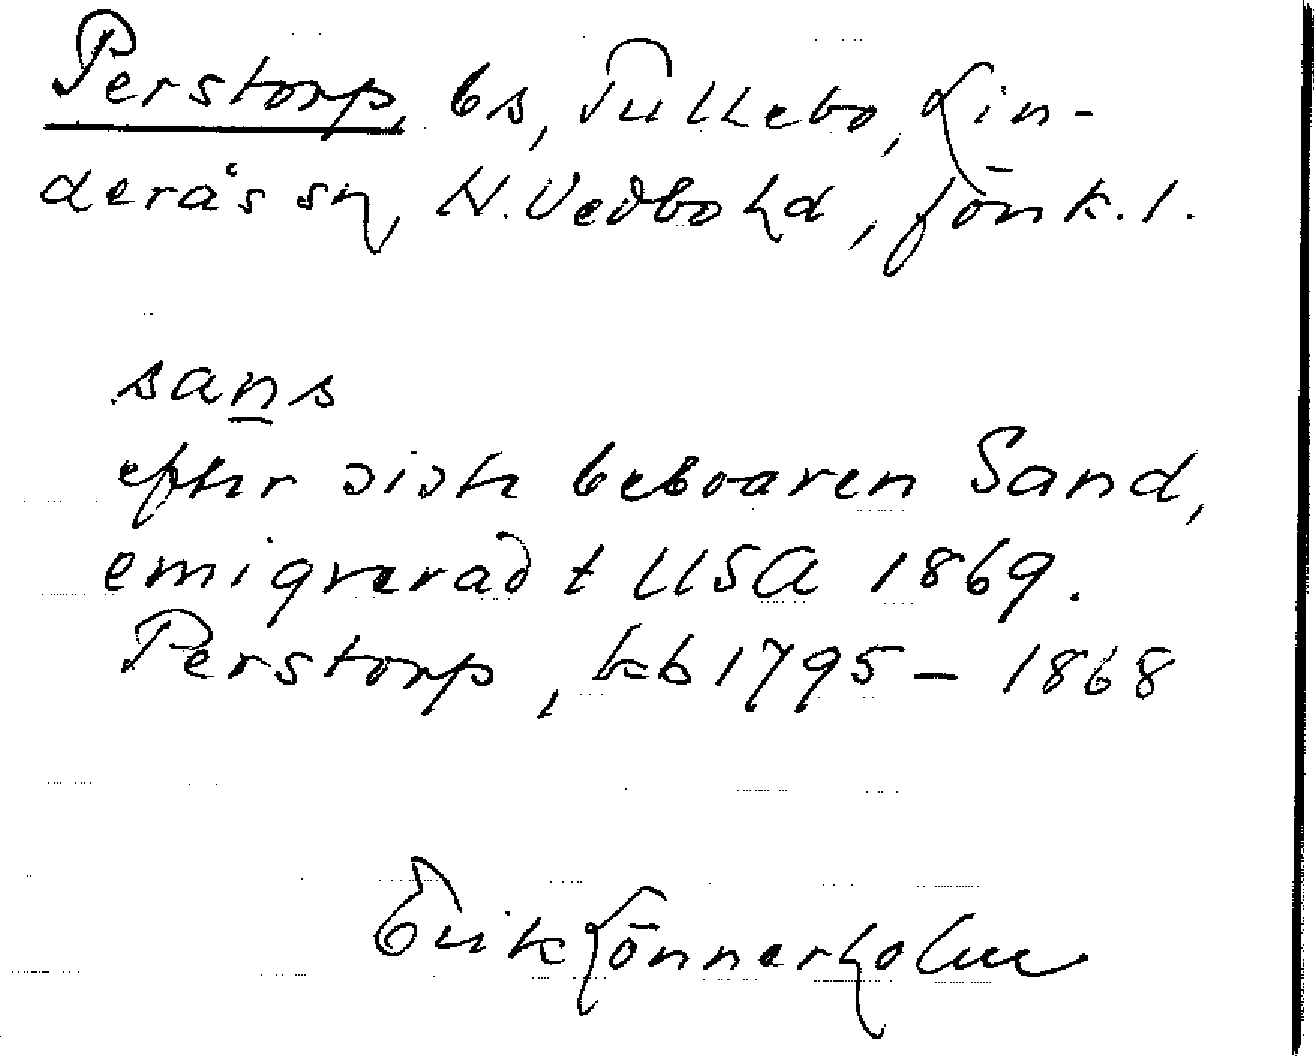 Perstorp, bs, Tullebo, Lin-
derås sn, N. Vedbo hd, Jönk. l.
sans
efter siste beboaren Sand,
emigrerad t USA 1869.
Perstorp, kb 1795 – 1868
Erik Lönnerholm